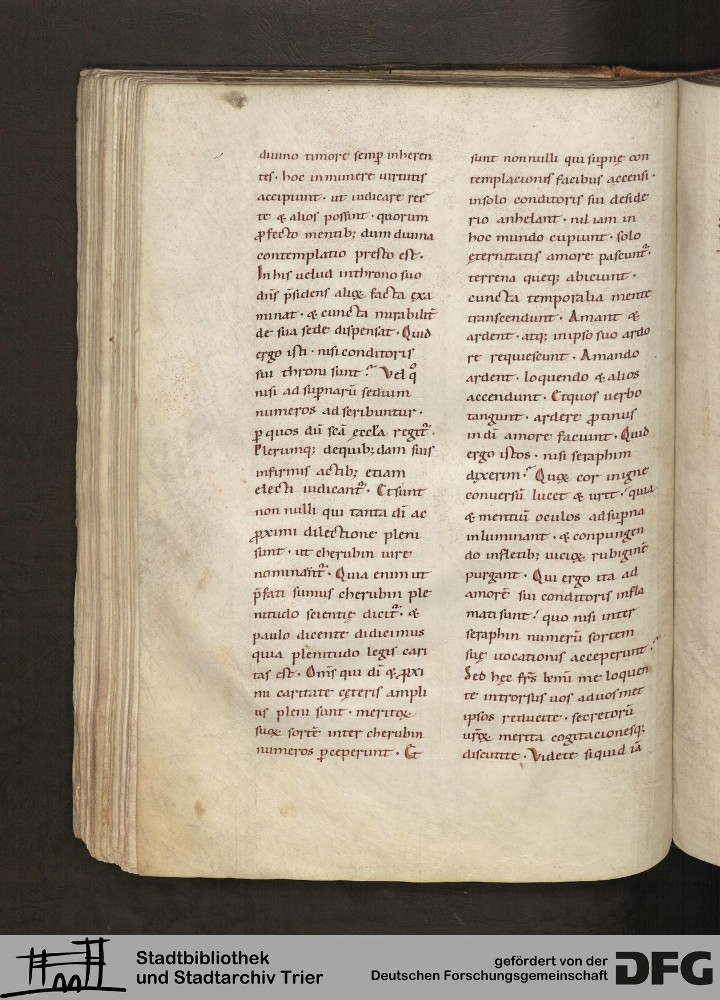 diuino timore semp̄ inheren
tes · hoc inmunere uirtutis
accipiunt · ut iudicare rec̄
te & alios possint · quorum
ꝓfecto mentib; dum diuina
contemplatio presto est ·
In his uelud inthrono suo
dn̄s p̄sidens alioꝝ facta exa
minat · & cuncta mirabilit̄
de sua sede dispensat · Quid
ergo isti · nisi conditoris
sui throni sunt? Vel q̊
nisi ad sup̄narū sedium
numeros adscribuntur ·
ꝑ quos dū sc̄a eccl̄a regit᷑ ·
Plerumq; dequib;dam suis
infirmis actib; etiam
electi iudicant᷑ · Et sunt
non nulli qui tanta dī ac
ꝓximi dilectione pleni
sunt · ut cherubin iure
nominant᷑ · Quia enim ut
p̄fati sumus cherubin ple
nitudo scientię dicit᷑ · &
paulo dicente didicimus
quia plenitudo legis cari
tas est · Om̄s qui dī & ꝓxi
mi caritate cęteris ampli
us pleni sunt · meritoꝝ
suoꝝ sortē inter cherubin
numeros ꝑceperunt · Et
sunt nonnulli qui sup̄nę con
templacionis facibus accensi ·
insolo conditoris sui deside
rio anhelant · nil iam in
hoc mundo cupiunt · solo
ęternitatis amore pascunt᷑ ·
terrena queq; abiciunt ·
cuncta temporalia mente
transcendunt · Amant &
ardent · atq; inipso suo ardo
re requiescunt · Amando
ardent · loquendo & alios
accendunt · Etquos uerbo
tangunt · ardere ꝓtinus
in dī amore faciunt · Quid
ergo istos · nisi seraphim
dixerim? Quoꝝ cor in igne
conuersū lucet & urit · quia
& mentiū oculos adsup̄na
inluminant · & conpungen
do infletib; uicioꝝ rubiginē
purgant · Qui ergo ita ad
amorē sui conditoris infla
mati sunt · quo nisi inter
seraphin numerū sortem
suę uocationis acceperunt?
Sed hec fr̄s km̄i me loquen
te introrsus uos aduosmet
ipsos reducite · secretorū
ur̄oꝝ merita cogitacionesq;
discutite · Videte siquid iā
Stadtbibliothek
und Stadtarchiv Trier
gefördert von der
Deutschen Forschungsgemeinschaft
DFG